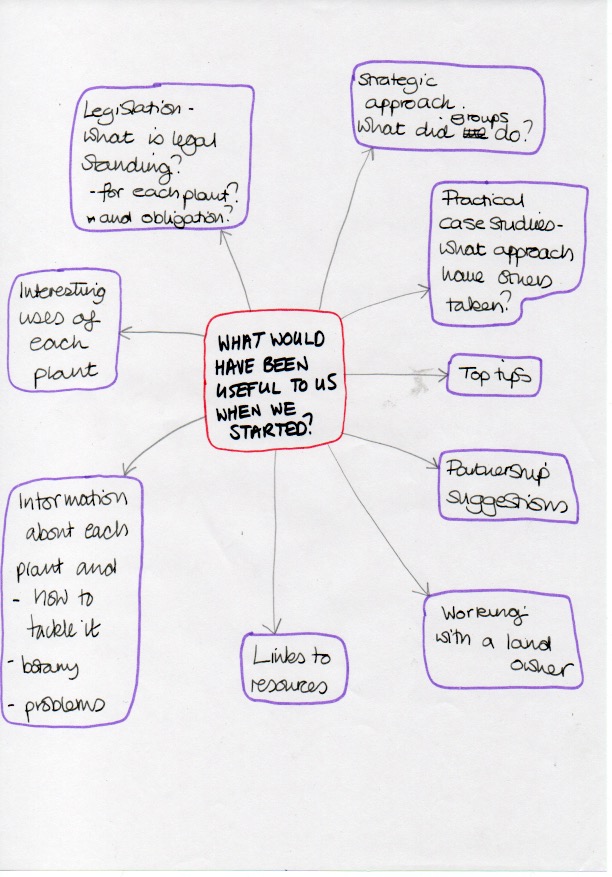 Legislation -
what is legal
standing?
- for each plant?
- and obligation?
Strategic
approach.
What did groups do?
Practical
case studies-
what approach
have others
taken?
Interesting
uses of
each
plant
WHAT WOULD
HAVE BEEN
USEFUL TO US
WHEN WE
STARTED?
Top tips
Partnership
suggestions
Information
about each
plant and
- how to
tackle it
- botany
- problems
Links to
resources
Working
with a land
owner